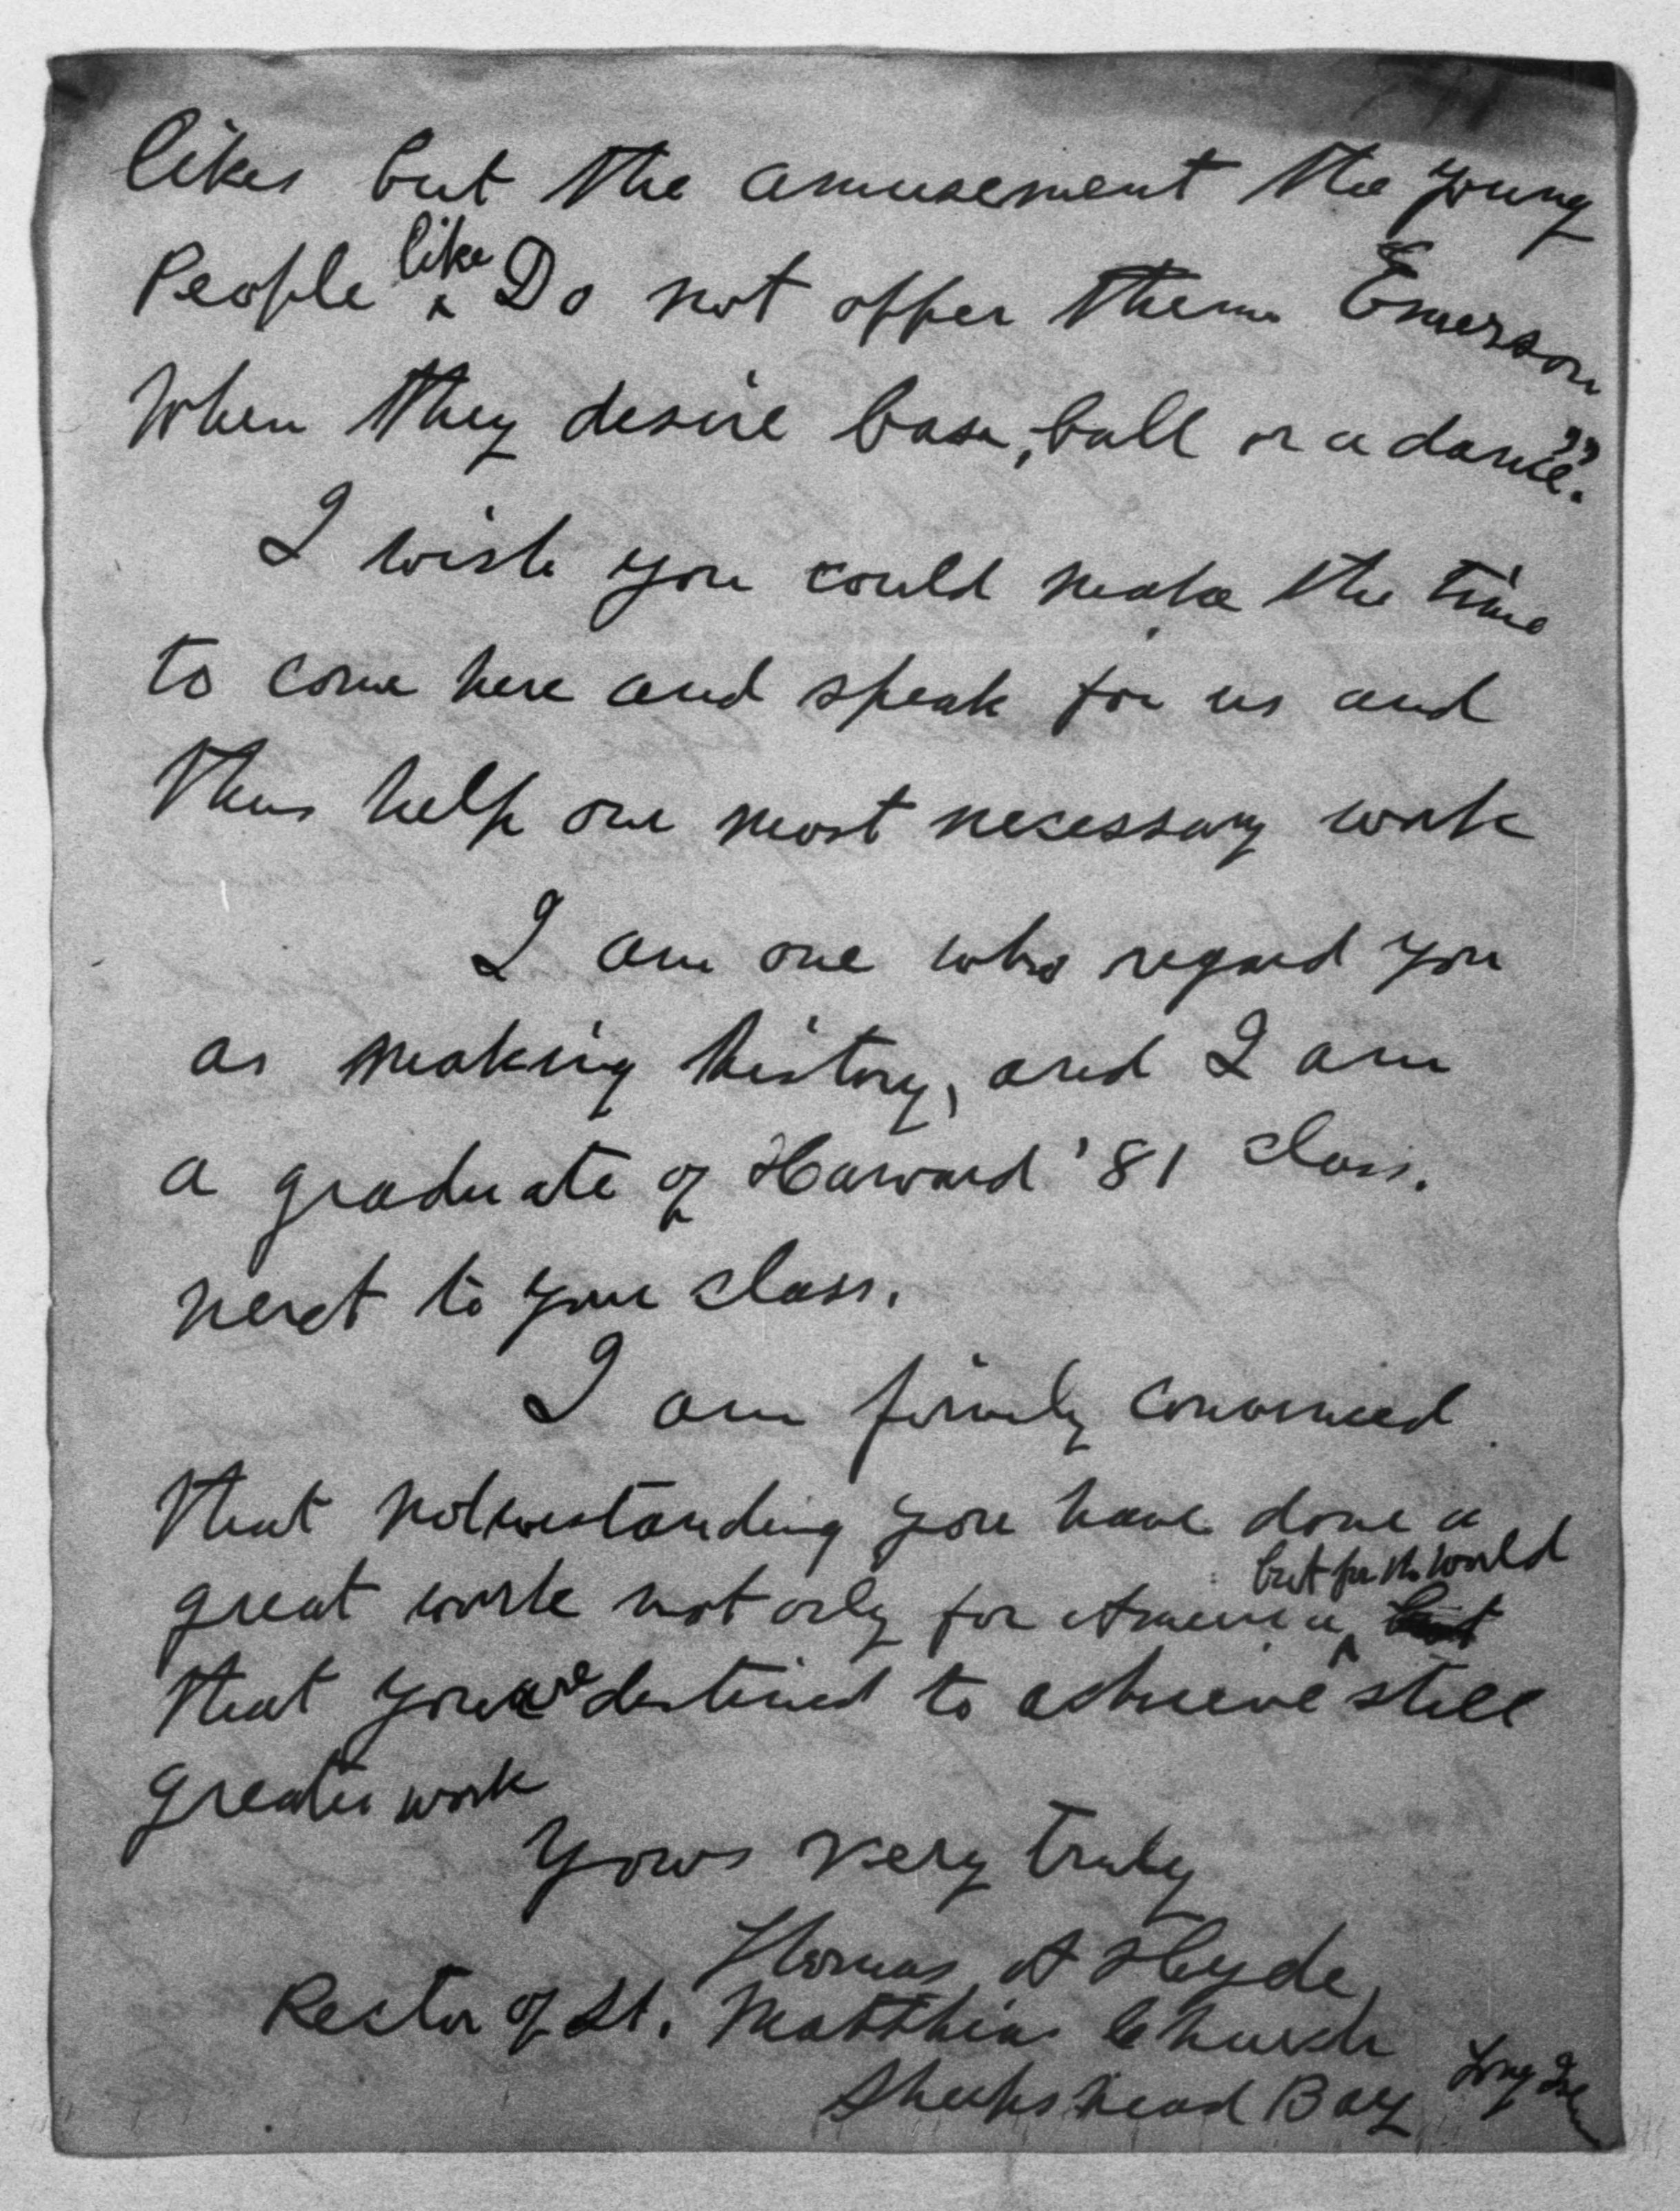 likes but the amusement the young
People like Do not offer them Emerson
When they desire base, ball or a dance."
I wish you could make the time
to come here and speak for us and
thus help our most necessary work
I am one who regard you
as making history, and I am
a graduate of Harvard '81 class.
next to your class.
I am firmly convinced
that notwistanding you have done a
great work not only for America but for the world
that you are destined to achieve still
greater work
Yours very truly
Thomas A Hyde,
Rector of St. Matthias Church
Sheepshead Bay Long Isl